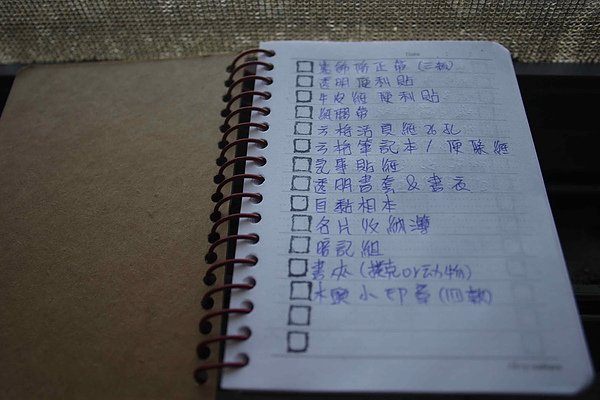 Date
裝飾修正帶(三款)
透明便利貼
牛皮紙便利貼
紙膠帶
方格活頁紙 26孔
方格筆記本/便條紙
記事貼紙
透明書套&書衣
自黏相本
名片收納簿
暗記組
書夾(撲克or动物)
木製小印章(10款)